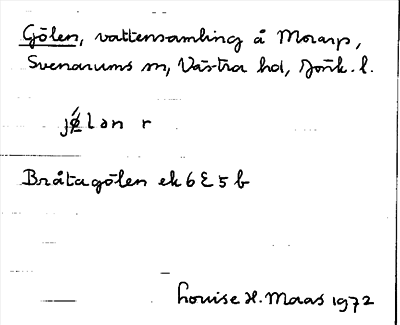 Gölen, vattensamling å Morarp,
Svenarums sn, Västra hd, Jönk. l.
jǿlan r
Bråtagölen ek 6E5b
Louise H. Maas 1972